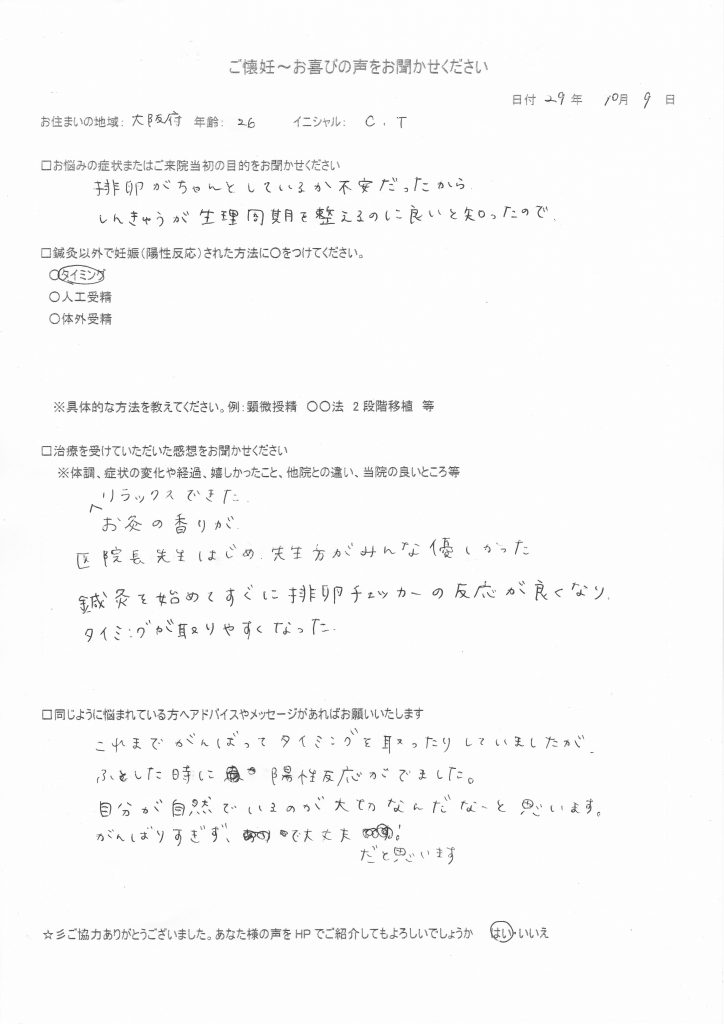 ご懐妊～お喜びの声をお聞かせください
日付 29年 10月 9日
お住まいの地域： 大阪府 年齢： 26 イニシャル： C．T
□お悩みの症状またはご来院当初の目的をお聞かせください
排卵がちゃんとしているか不安だったから．
しんきゅうが生理周期を整えるのに良いと知ったので．
□鍼灸以外で妊娠（陽性反応）された方法に○をつけてください。
○タイミング
○人工受精
○体外受精
※具体的な方法を教えてください。例：顕微授精 ○○法 2段階移植 等
□治療を受けていただいた感想をお聞かせください
※体調、症状の変化や経過、嬉しかったこと、他院との違い、当院の良いところ等
リラックスできた．
お灸の香りが．
院長先生はじめ、先生方がみんな優しかった
鍼灸を始めてすぐに排卵チェッカーの反応が良くなり、
タイミングが取りやすくなった．
□同じように悩まれている方へアドバイスやメッセージがあればお願いいたします
これまでがんばってタイミングを取ったりしていましたが、
ふとした時に 陽性反応がでました。
自分が自然でいるのが大切なんだなーと思います。
がんばりすぎず、 で大丈夫
だと思います
☆彡ご協力ありがとうございました。あなた様の声をHPでご紹介してもよろしいでしょうか はい・いいえ